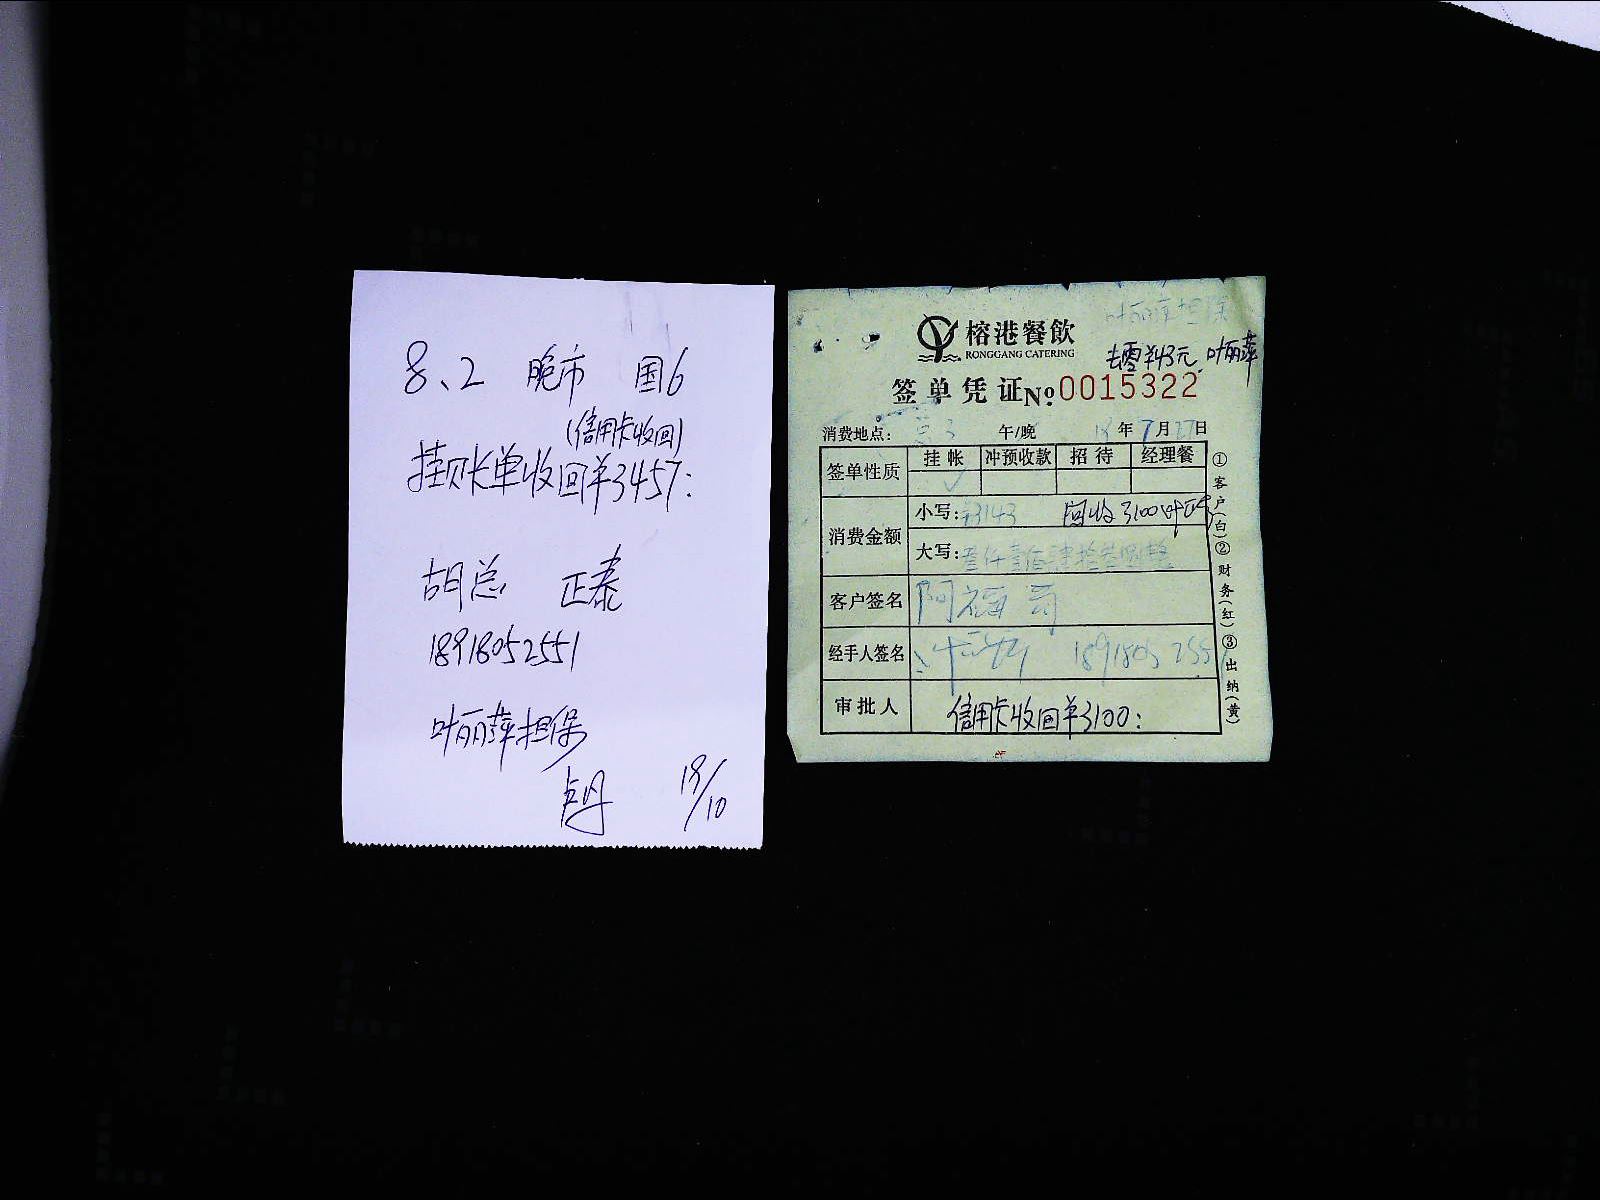 8、2 晚市 国6
(信用卡收回)
挂账单收回¥3457:
胡总 正泰
18918052551
叶丽萍担保
18/10
叶丽萍担保
榕港餐飲
RONGGANG CATERING
去零¥43元.叶丽萍
签单凭证 No: 0015322
消费地点: 午/晚 18年7月27日
签单性质 挂帐 冲预收款 招待 经理餐
✓
消费金额 小写: ¥3143 回收3100
大写: 叁仟壹佰肆拾叁圆整
客户签名
经手人签名 18918052551
审批人 信用卡收回¥3100:
①客户(白)②财务(红)③出纳(黄)